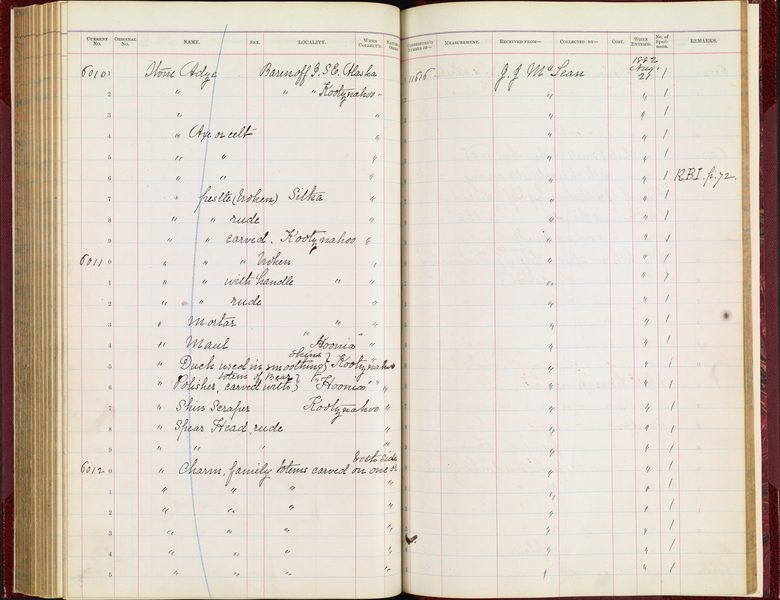 CURRENT No. ORIGINAL No. NAME. SEX. LOCALITY. WHEN COLLECT'D. MEASUREMENT. RECEIVED FROM— COLLECTED BY— COST. WHEN ENTER'D. No. of Speci- mens. REMARKS.
1882
60101 Stone Adze Baranoff I. S.E. Alaska 11616 J. J. McLean Aug. 21 1
2 " " " Kootznahoo " " " 1
3 " " " " 1
4 " Axe or celt " " " 1
5 " " " " " 1
6 " " " " " 1 R.B.I. p. 72.
7 " pestle (broken) Sitka " " " 1
8 " " rude " " " 1
9 " " carved. Kootznahoo " " " 1
60110 " " " broken " " " 1
1 " " with handle " " " " 1
2 " " rude " " " 1
3 " Mortar " " " " 1
4 " Maul " Hoonia " " " 1
skins
5 " used in smoothing } Kootznahoo " " 1
totem of Bear
6 " Polisher, carved with } " Hoonia " " " " 1
7 " Skin Scraper Kootznahoo " " " 1
8 " Spear Head, rude " " " 1
9 " " " " " " 1
both side
60120 " Charm, family totems carved on one or " " " 1
1 " " " " " " 1
2 " " " " " " 1
3 " " " " " " 1
4 " " " " " " 1
5 " " " " " " 1